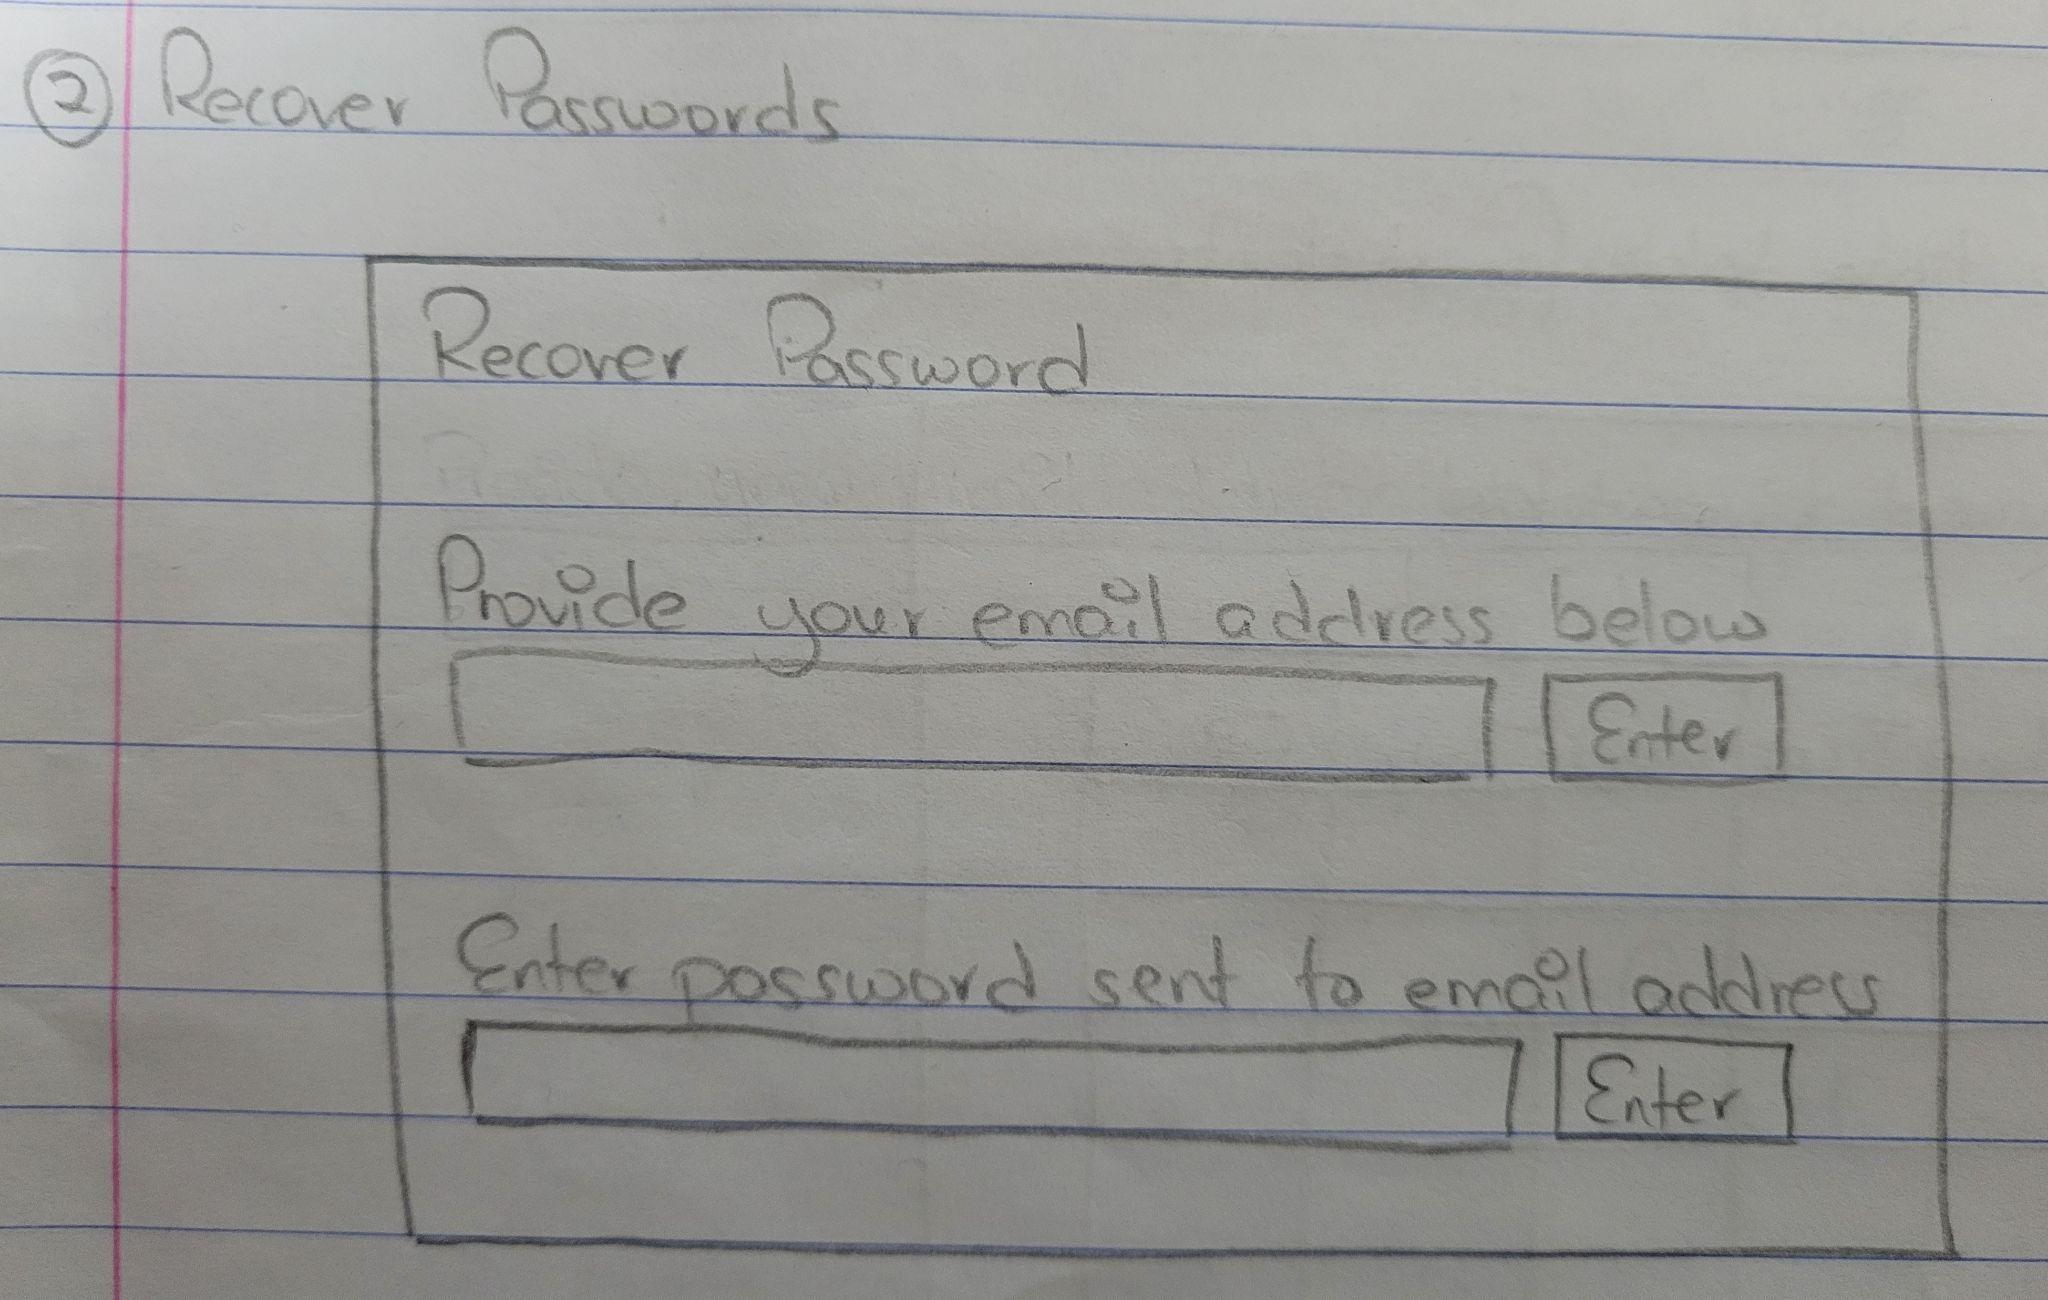 ② Recover Passwords
Recover Password
Provide your email address below
Enter
Enter password sent to email address
Enter